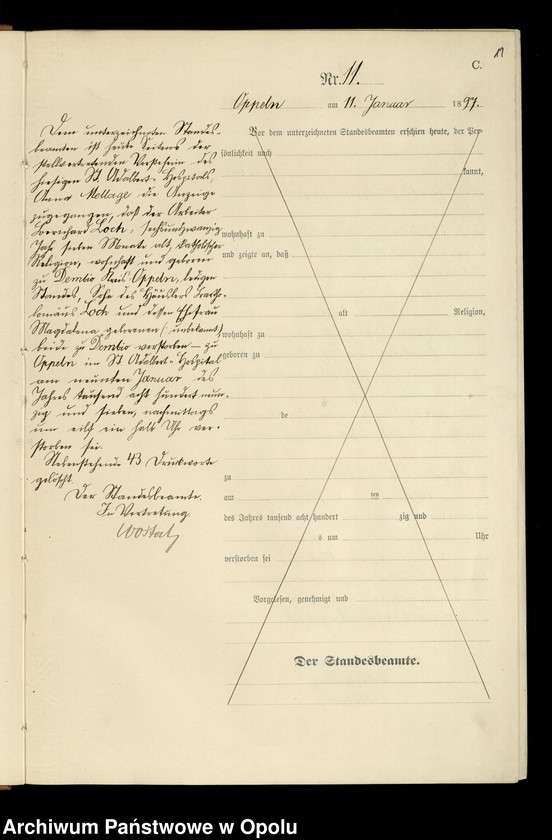 19
C.
Nr. 11.
Oppeln am 11. Januar 1897.
Dem unterzeichneten Standes-
beamten ist heute Seitens der
stellvertretenden Vorsteherin des
hiesigen St. Adalbert-Hospitals,
Anna Mellage die Anzeige
zugegangen, daß der Arbeiter
Bernhard Loch, sechsundzwanzig
Jahr sieben Monate alt, katholischer
Religion, wohnhaft und geboren
zu Dembio Kreis Oppeln, ledigen
Standes, Sohn des Häuslers Bartho-
lomäus Loch und dessen Ehefrau
Magdalena geborenen (unbekannt)
beide zu Dembio verstorben — zu
Oppeln im St Adalbert-Hospital
am neunten Januar des
Jahres tausend acht hundert neun-
zig und sieben, nachmittags
um eilf ein halb Uhr ver-
storben sei.
Nebenstehende 43 Druckworte
gelöscht.
Der Standesbeamte.
In Vertretung.
Vor dem unterzeichneten Standesbeamten erschien heute, der Per-
sönlichkeit nach
kannt,
wohnhaft zu
und zeigte an, daß
alt Religion,
wohnhaft zu
geboren zu
de
zu
am ten
des Jahres tausend acht hundert zig und
s um Uhr
verstorben sei
Vorgelesen, genehmigt und
Der Standesbeamte.
Archiwum Państwowe w Opolu